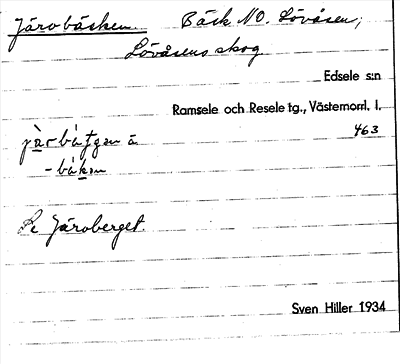 Järvbäcken Bäck NO. Lövåsen;
Lövåsens skog
Edsele s:n
Ramsele och Resele tg., Västernorrl. l.
463
Se Järvberget.
Sven Hiller 1934